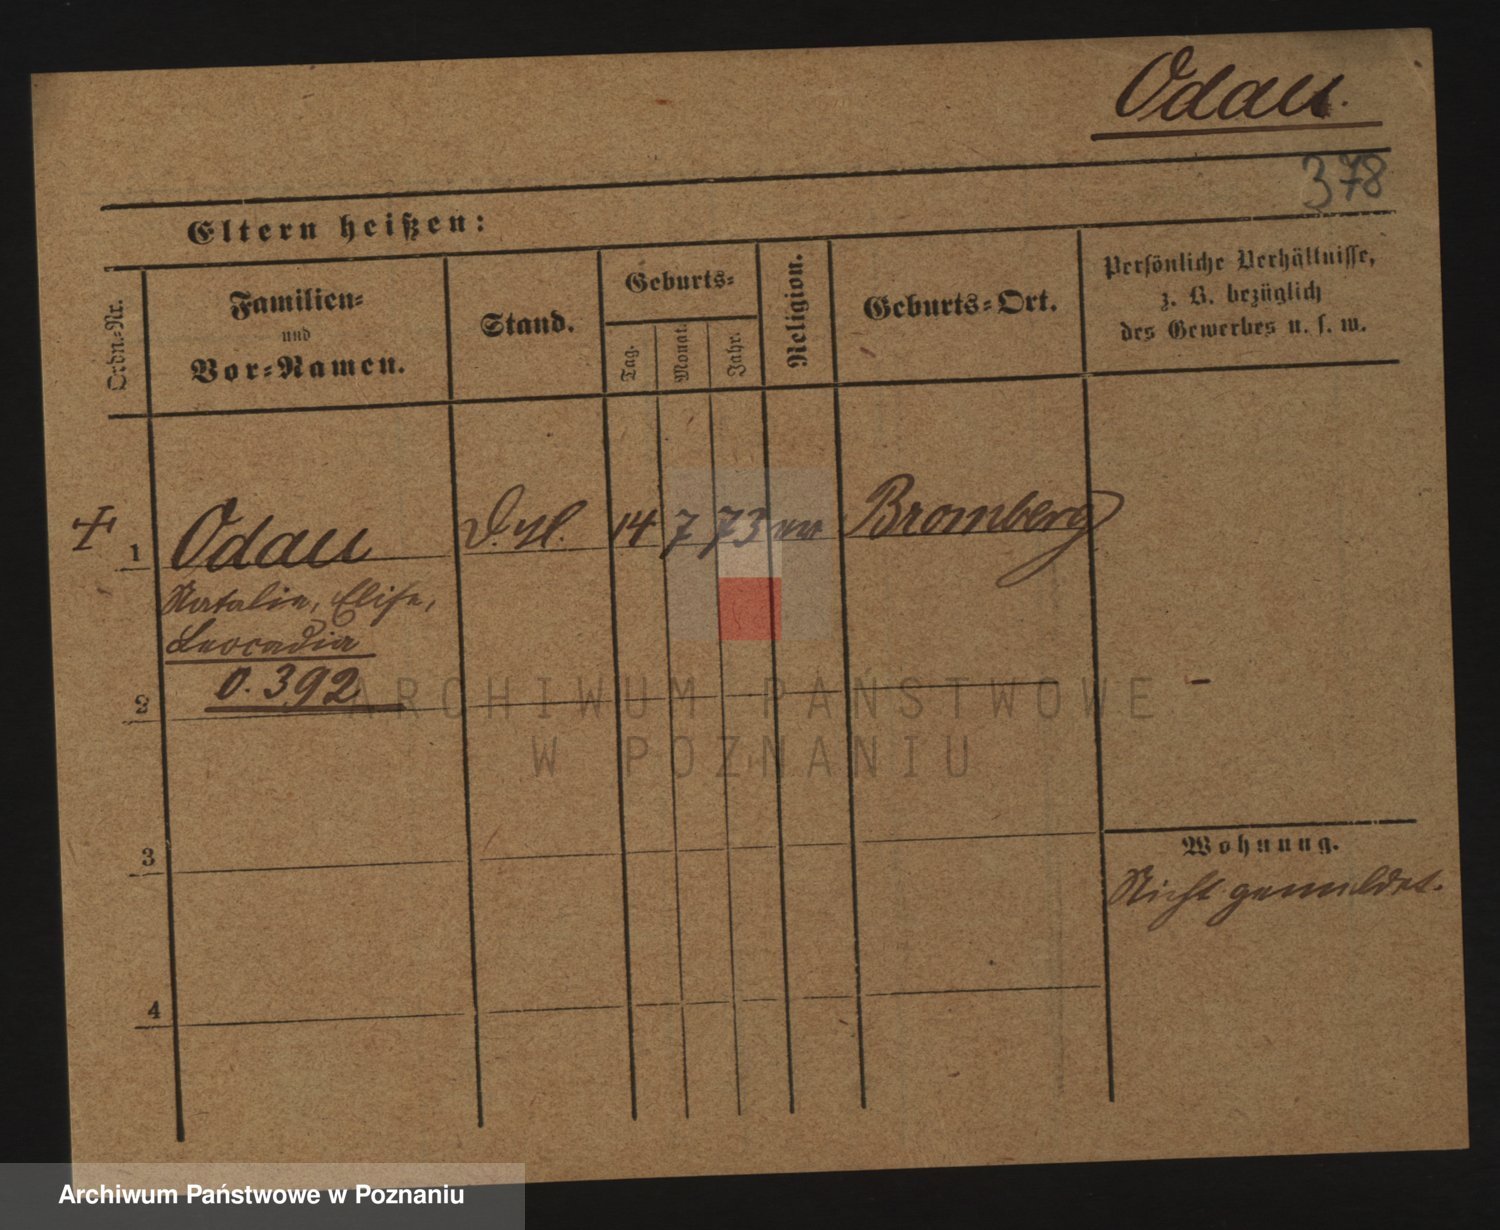 Odau.
378
Eltern heißen:
Ordn.-Nr.
Familien-
und
Vor-Namen.
Stand.
Geburts-
Tag.
Monat.
Jahr.
Religion.
Geburts-Ort.
Persönliche Verhältnisse,
z. B. bezüglich
des Gewerbes u. s. w.
1 Odau 14 7 73 Bromberg
Natalie, Elise,
Leocadia
2 O. 392
ARCHIWUM PAŃSTWOWE
W POZNANIU
3
Wohnung.
Nicht gemeldet.
4
Archiwum Państwowe w Poznaniu